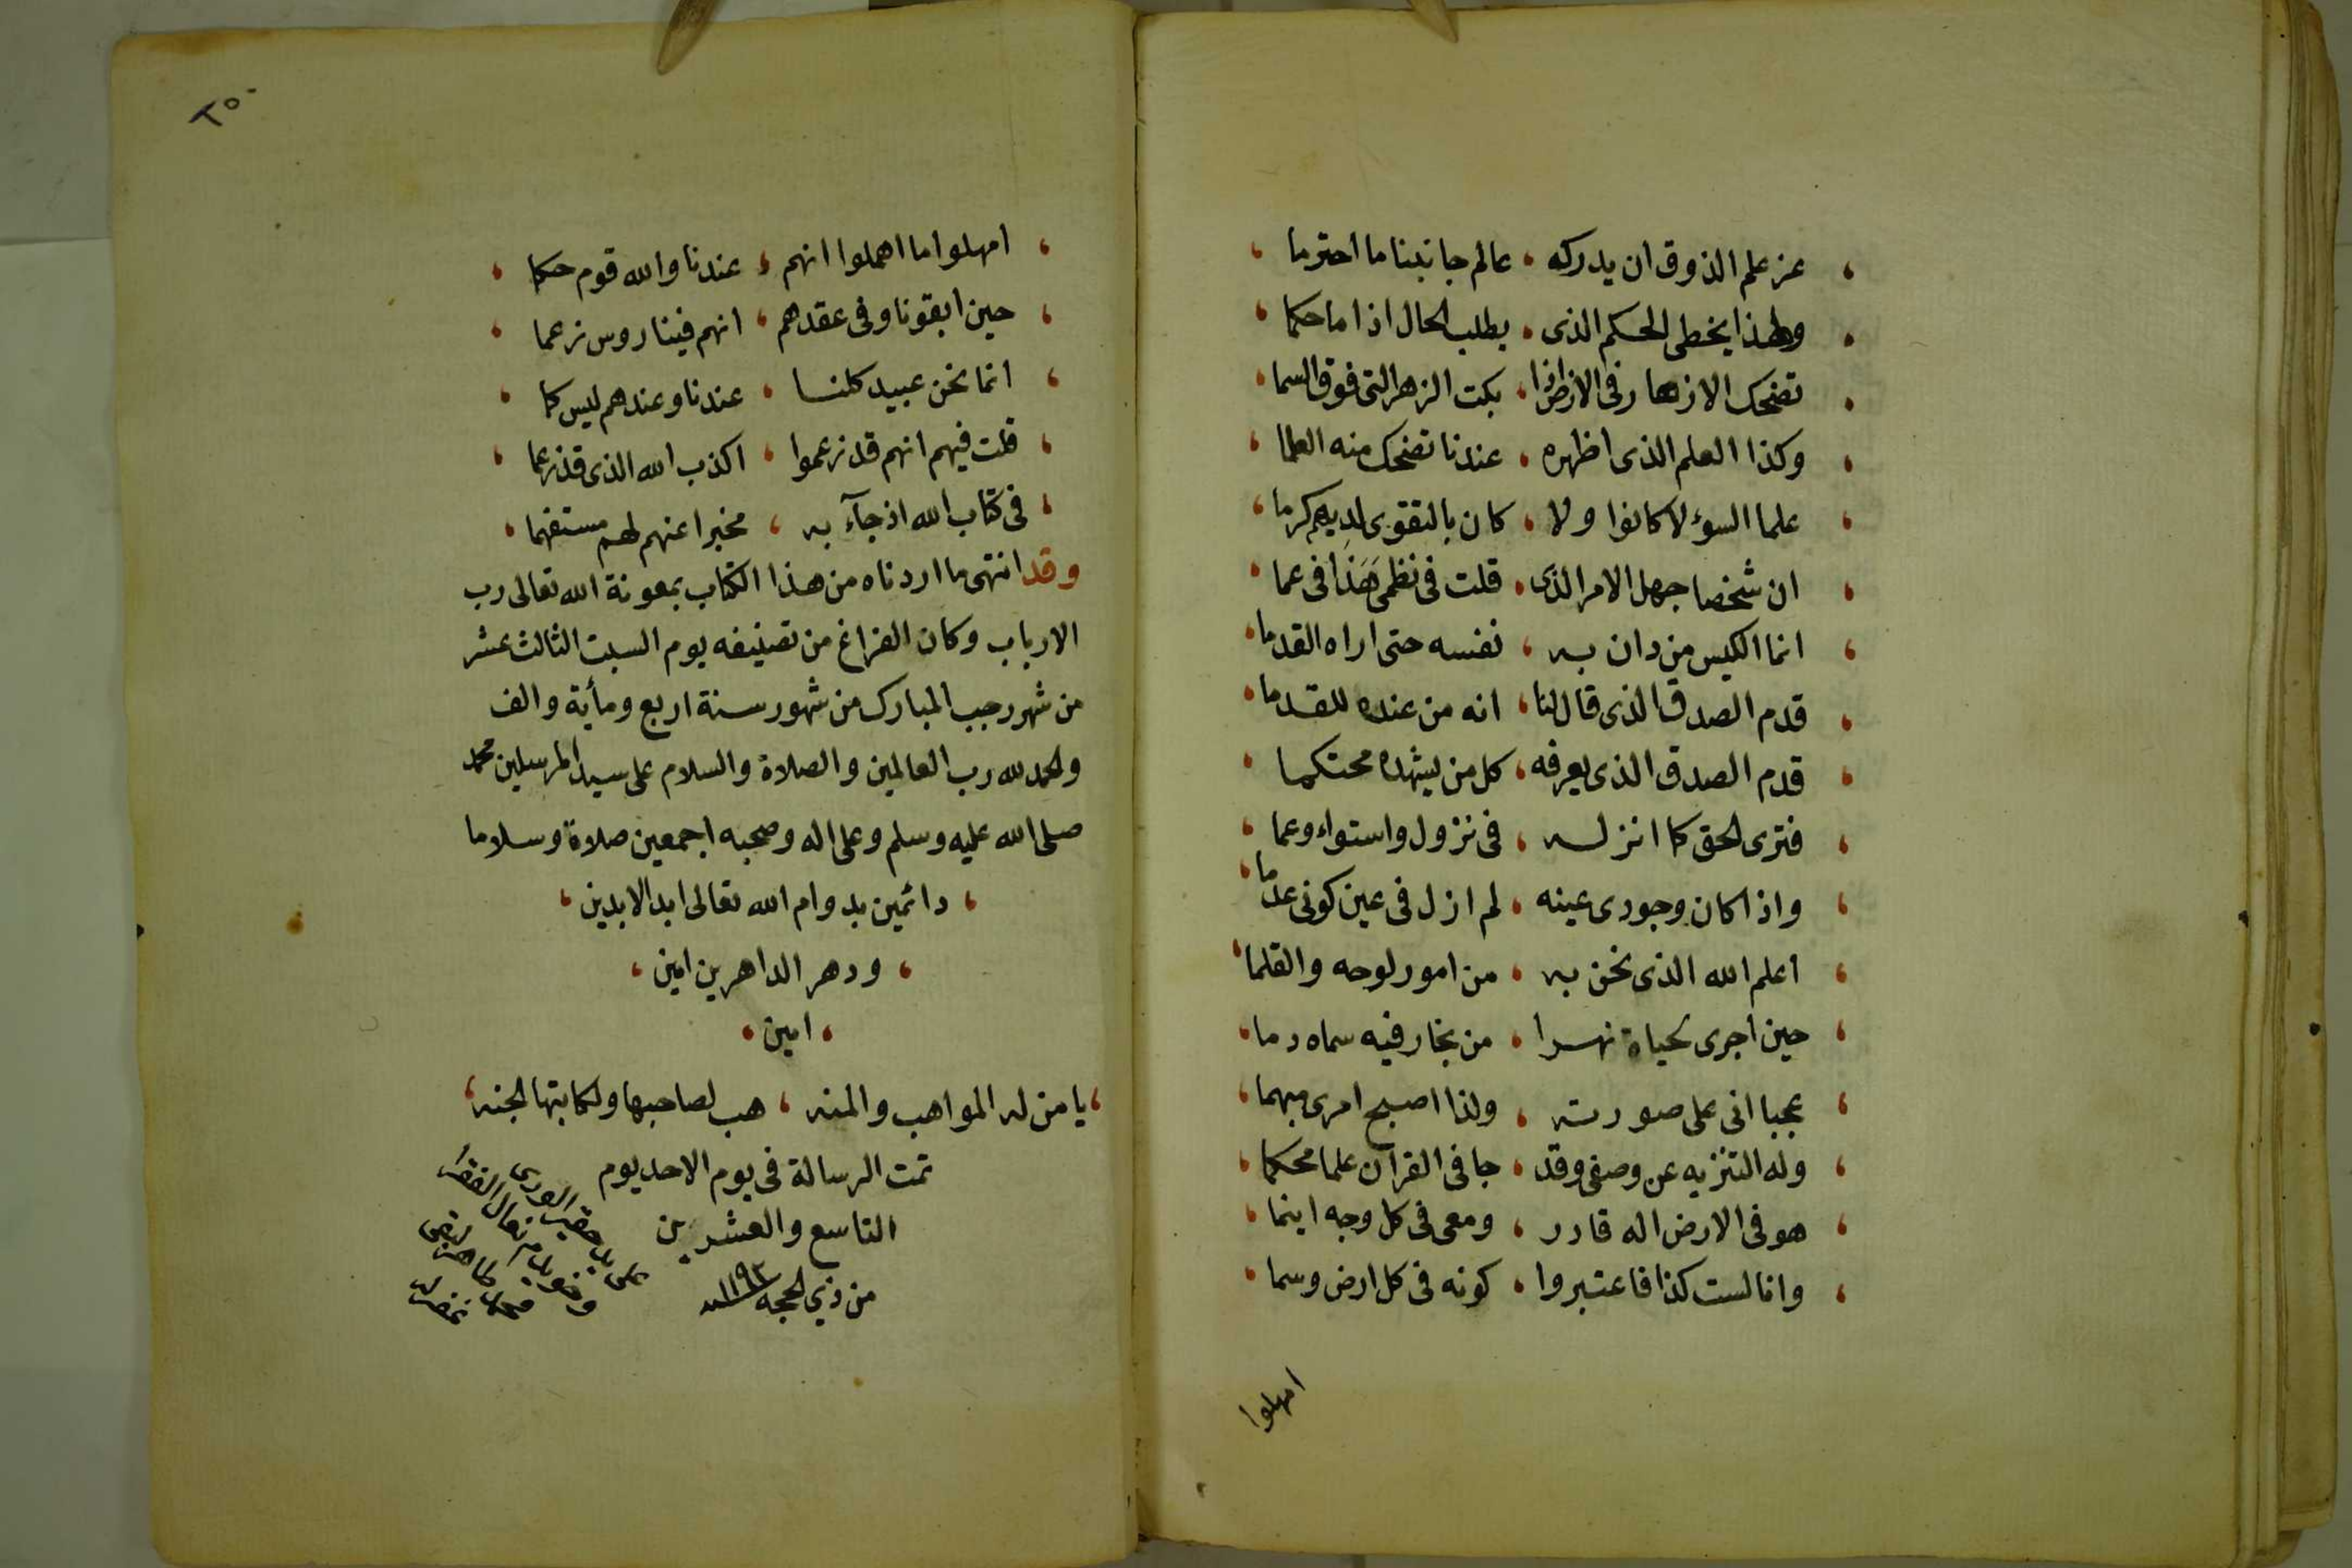 عز علم الذوق ان يدركه ، عالم جانبنا ما احترما
ولهذا يخطى الحكم الذى ، يطلب الحال اذا ما حكما
تضحك الازهار فى الارض اذا ، بكت الزهر التى فوق السما
وكذا العلم الذى اظهره ، عندنا تضحك منه العلما
علما السوء لا كانوا ولا ، كان بالتقوى لديهم كرما
ان شخصا جهل الامر الذى ، قلت فى نظمى هَذَا فى عما
انما الكيس من دان به ، نفسه حتى اراه القدما
قدم الصدق الذى قال لنا ، انه من عنده للقدما
قدم الصدق الذى يعرفه ، كل من يشهده محتكما
فترى الحق كما انزله ، فى نزول واستواء وعما
واذا كان وجودى عينه ، لم ازل فى عين كونى عدما
اعلم الله الذى نحن به ، من امور لوحه والقلما
حين اجرى لحياة نهرا ، من بخار فيه سماه دما
عجبا انى على صورته ، ولذا اصبح امرى مبهما
وله التنزيه عن وصفى وقد ، جا فى القرآن علما محكما
هو فى الارض اله قادر ، ومعى فى كل وجه اينما
وانا لست كذا فاعتبروا ، كونه فى كل ارض وسما
امهلوا
٢٥٠
امهلوا ما اهملوا انهم ، عندنا والله قوم حكما
حين ابقونا وفى عقدهم ، انهم فينا روس زعما
انما نحن عبيد كلنا ، عندنا وعندهم ليس كما
قلت فيهم انهم قد زعموا ، اكذب الله الذى قد زعما
فى كتاب الله اذ جآء به ، مخبرا عنهم لهم مستفهما
وقد انتهى ما اردناه من هذا الكتاب بمعونة الله تعالى رب
الارباب وكان الفراغ من تصنيفه يوم السبت الثالث عشر
من شهر رجب المبارك من شهور سنة اربع ومأية والف
والحمد لله رب العالمين والصلاة والسلام على سيد المرسلين محمد
صلى الله عليه وسلم وعلى اله وصحبه اجمعين صلاة وسلاما
، دائمين بدوام الله تعالى ابد الابدين ،
، ودهر الداهرين امين ،
، امين ،
، يا من له المواهب والمنه ، هب لصاحبها ولكاتبها الجنه ،
تمت الرسالة فى يوم الاحد يوم
التاسع والعشرين
من ذي الحجه ١١٩٣ سنه